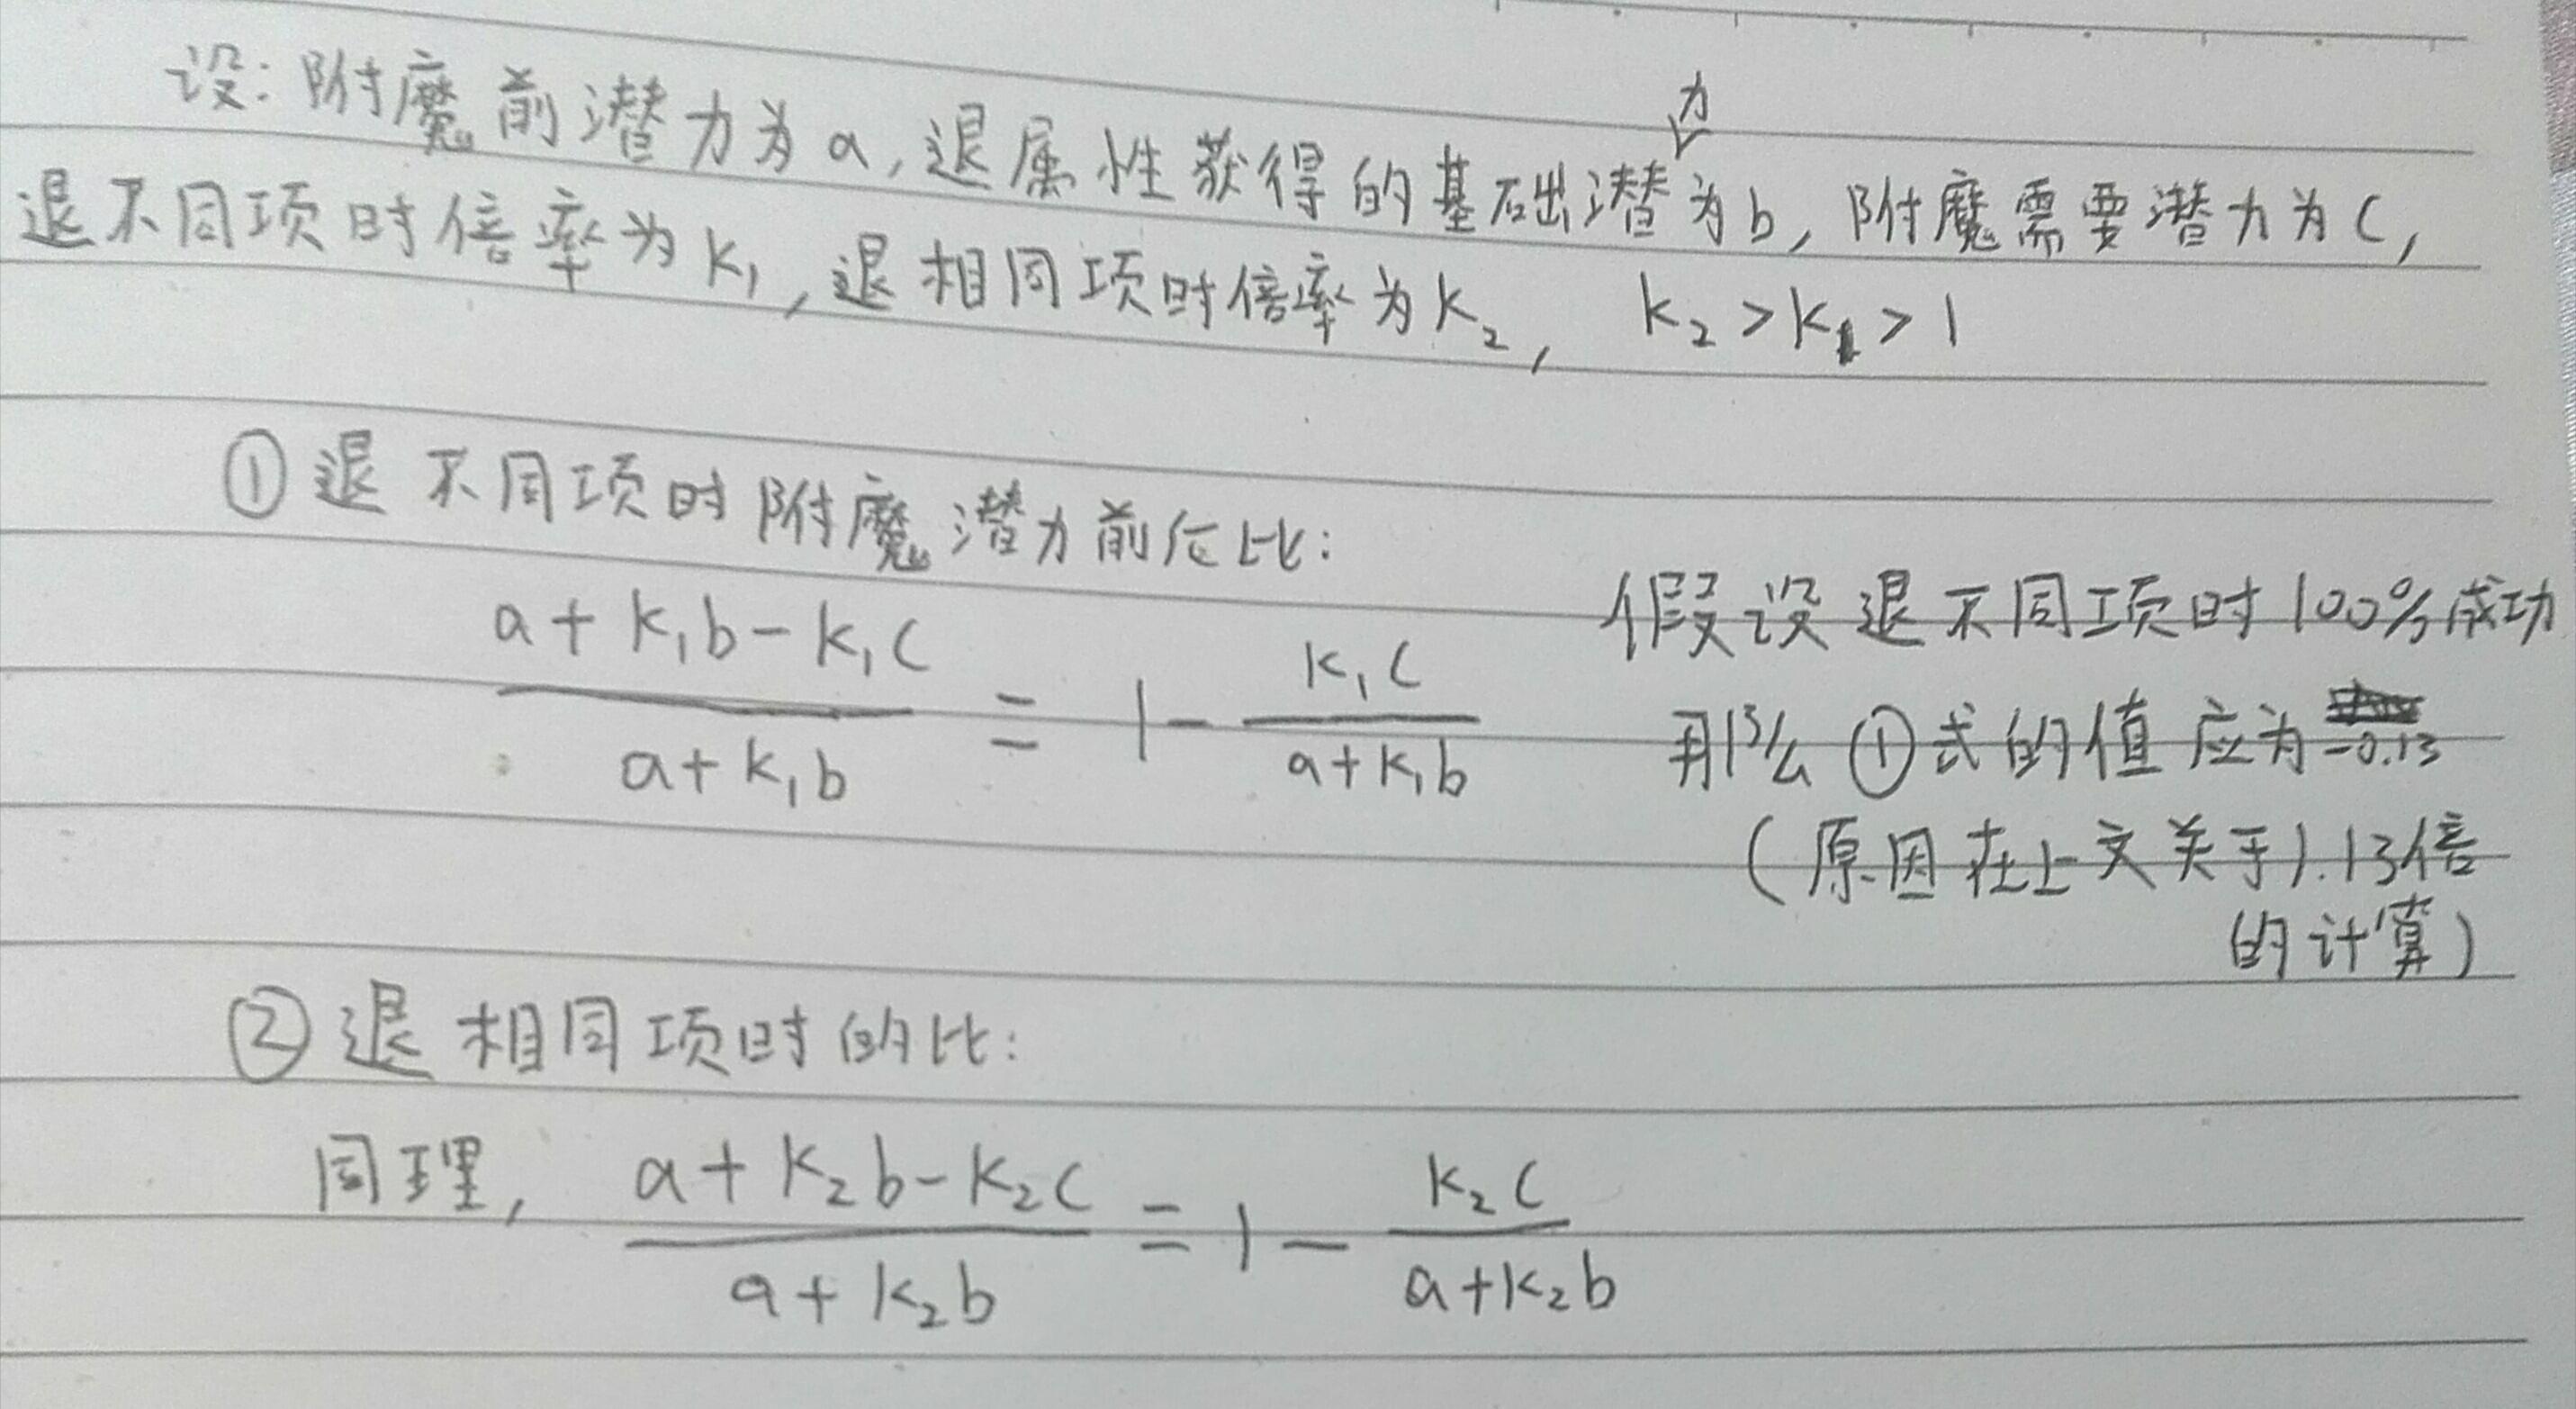 设：附魔前潜力为a，退属性获得的基础潜力为b，附魔需要潜力为c，
退不同项时倍率为k₁，退相同项时倍率为k₂， k₂>k₁>1
①退不同项时附魔潜力前后比：
(a+k₁b-k₁c)/(a+k₁b) = 1-k₁c/(a+k₁b)
假设退不同项时100%成功
那么①式的值应为-0.13
(原因在上文关于1.13倍
的计算)
②退相同项时的比：
同理，(a+k₂b-k₂c)/(a+k₂b) = 1-k₂c/(a+k₂b)